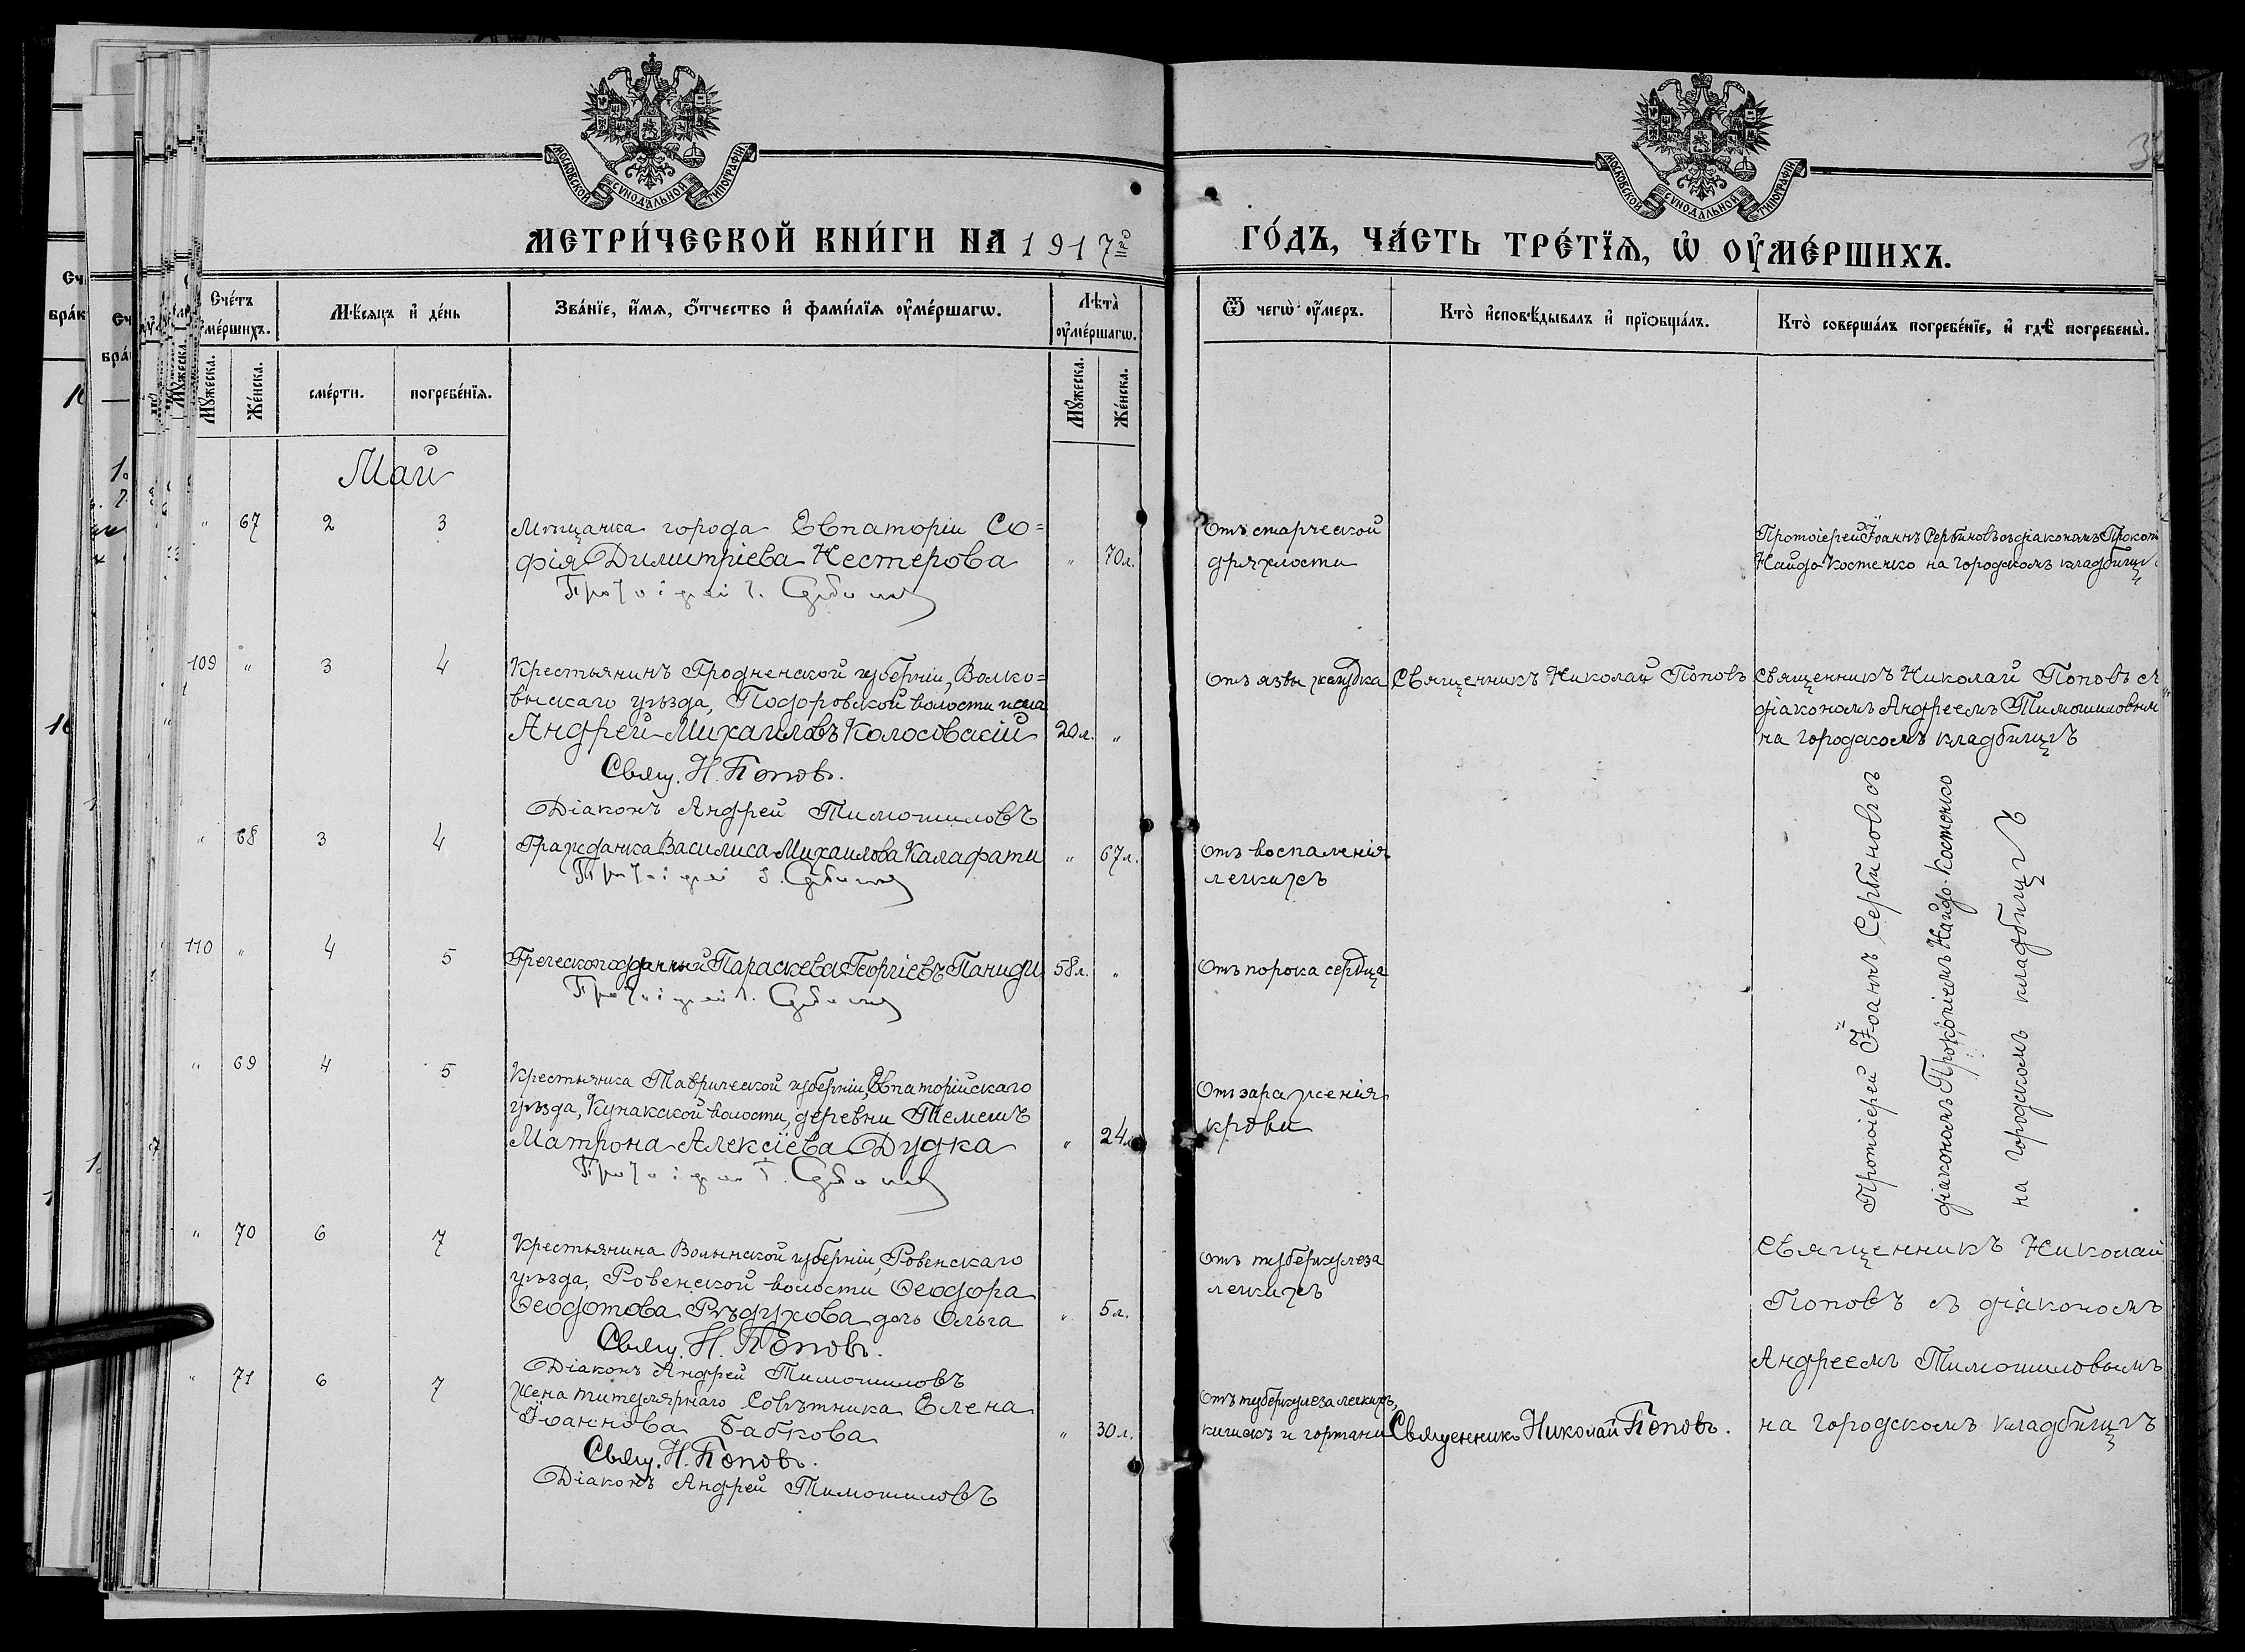 МОСКОВСКОЙ СѴНОДАЛЬНОЙ ТИПОГРАФІИ
МОСКОВСКОЙ СѴНОДАЛЬНОЙ ТИПОГРАФІИ
МЕТРИ́ЧЕСКОЙ КНИ́ГИ НА 1917й
ГО́ДЪ, ЧА́СТЬ ТРЕ́ТЇѦ, Ѡ҆ ОУ҆МЕ́РШИХЪ.
Сче́тъ оу҆ме́ршихъ.
Мѣ́сяцъ и҆ де́нь
Зва́нїе, и҆́мѧ, ѻ҆́тчество и҆ фами́лїѧ оу҆ме́ршагѡ.
Лѣта̀ оу҆ме́ршагѡ.
Ѿ чегѡ̀ оу҆́меръ.
Кто̀ и҆сповѣ́дывалъ и҆ прїѡбща́лъ.
Кто̀ соверша́лъ погребе́нїе, и҆ гдѣ̀ погребены̀.
Мꙋ́жеска.
Же́нска.
сме́рти.
погребе́нїѧ.
Мꙋ́жеска.
Же́нска.
Май
" 67 2 3
Мѣщанка города Евпаторіи Со=
фія Димитріева Нестерова " 70 л.
Протоіерей І. Сербиновъ
Отъ старческой
дряхлости
Протоіерей Іоаннъ Сербиновъ съ діакономъ
Найдо-Костенко на городскомъ кладбищѣ
109 " 3 4
Крестьянинъ Гродненской губерніи, Волко=
выскаго уѣзда, Подоровской волости
Андрей Михаиловъ Колосовскій 20 л. "
Свящ. Н. Поповъ.
Діаконъ Андрей Тимошиловъ
Отъ язвы желудка
Священникъ Николай Поповъ
Священникъ Николай Поповъ съ
діакономъ Андреемъ Тимошиловым
на городскомъ кладбищѣ
" 68 3 4
Гражданка Василиса Михаилова Калафати " 67 л.
Протоіерей І. Сербиновъ
Отъ воспаленія
легкихъ
Протоіерей Іоаннъ Сербиновъ съ
діакономъ Прокопіемъ Найдо-Костенко
на городскомъ кладбищѣ
110 " 4 5
Греческоподданный Параскева Георгіевъ Паниди 58 л. "
Протоіерей І. Сербиновъ
Отъ порока сердца
" 69 4 5
Крестьянка Таврической губерніи, Евпаторійскаго
уѣзда, Кунакской волости, деревни Темешъ
Матрона Алексіева Дудка " 24 л.
Протоіерей І. Сербиновъ
Отъ зараженія
крови
" 70 6 7
Крестьянина Волынской губерніи, Ровенскаго
уѣзда, Ровенской волости Ѳеодора
Ѳеодотова Рѣдухова дочь Ольга " 5 л.
Свящ. Н. Поповъ.
Діаконъ Андрей Тимошиловъ
Отъ туберкулеза
легкихъ
Священникъ Николай
Поповъ съ діакономъ
Андреемъ Тимошиловымъ
на городскомъ кладбищѣ
" 71 6 7
Жена титулярнаго Совѣтника Елена
Іоаннова Бабкова " 30 л.
Свящ. Н. Поповъ.
Діаконъ Андрей Тимошиловъ
Отъ туберкулеза легкихъ,
кишекъ и гортани
Священникъ Николай Поповъ.